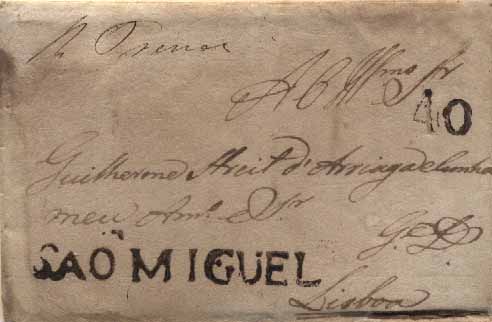 Ao Illmo Sr
40
Guilherme Street d'Arriaga e Cunha
meu Amo e Sr
G. D.
SAÕ MIGUEL
Lisboa